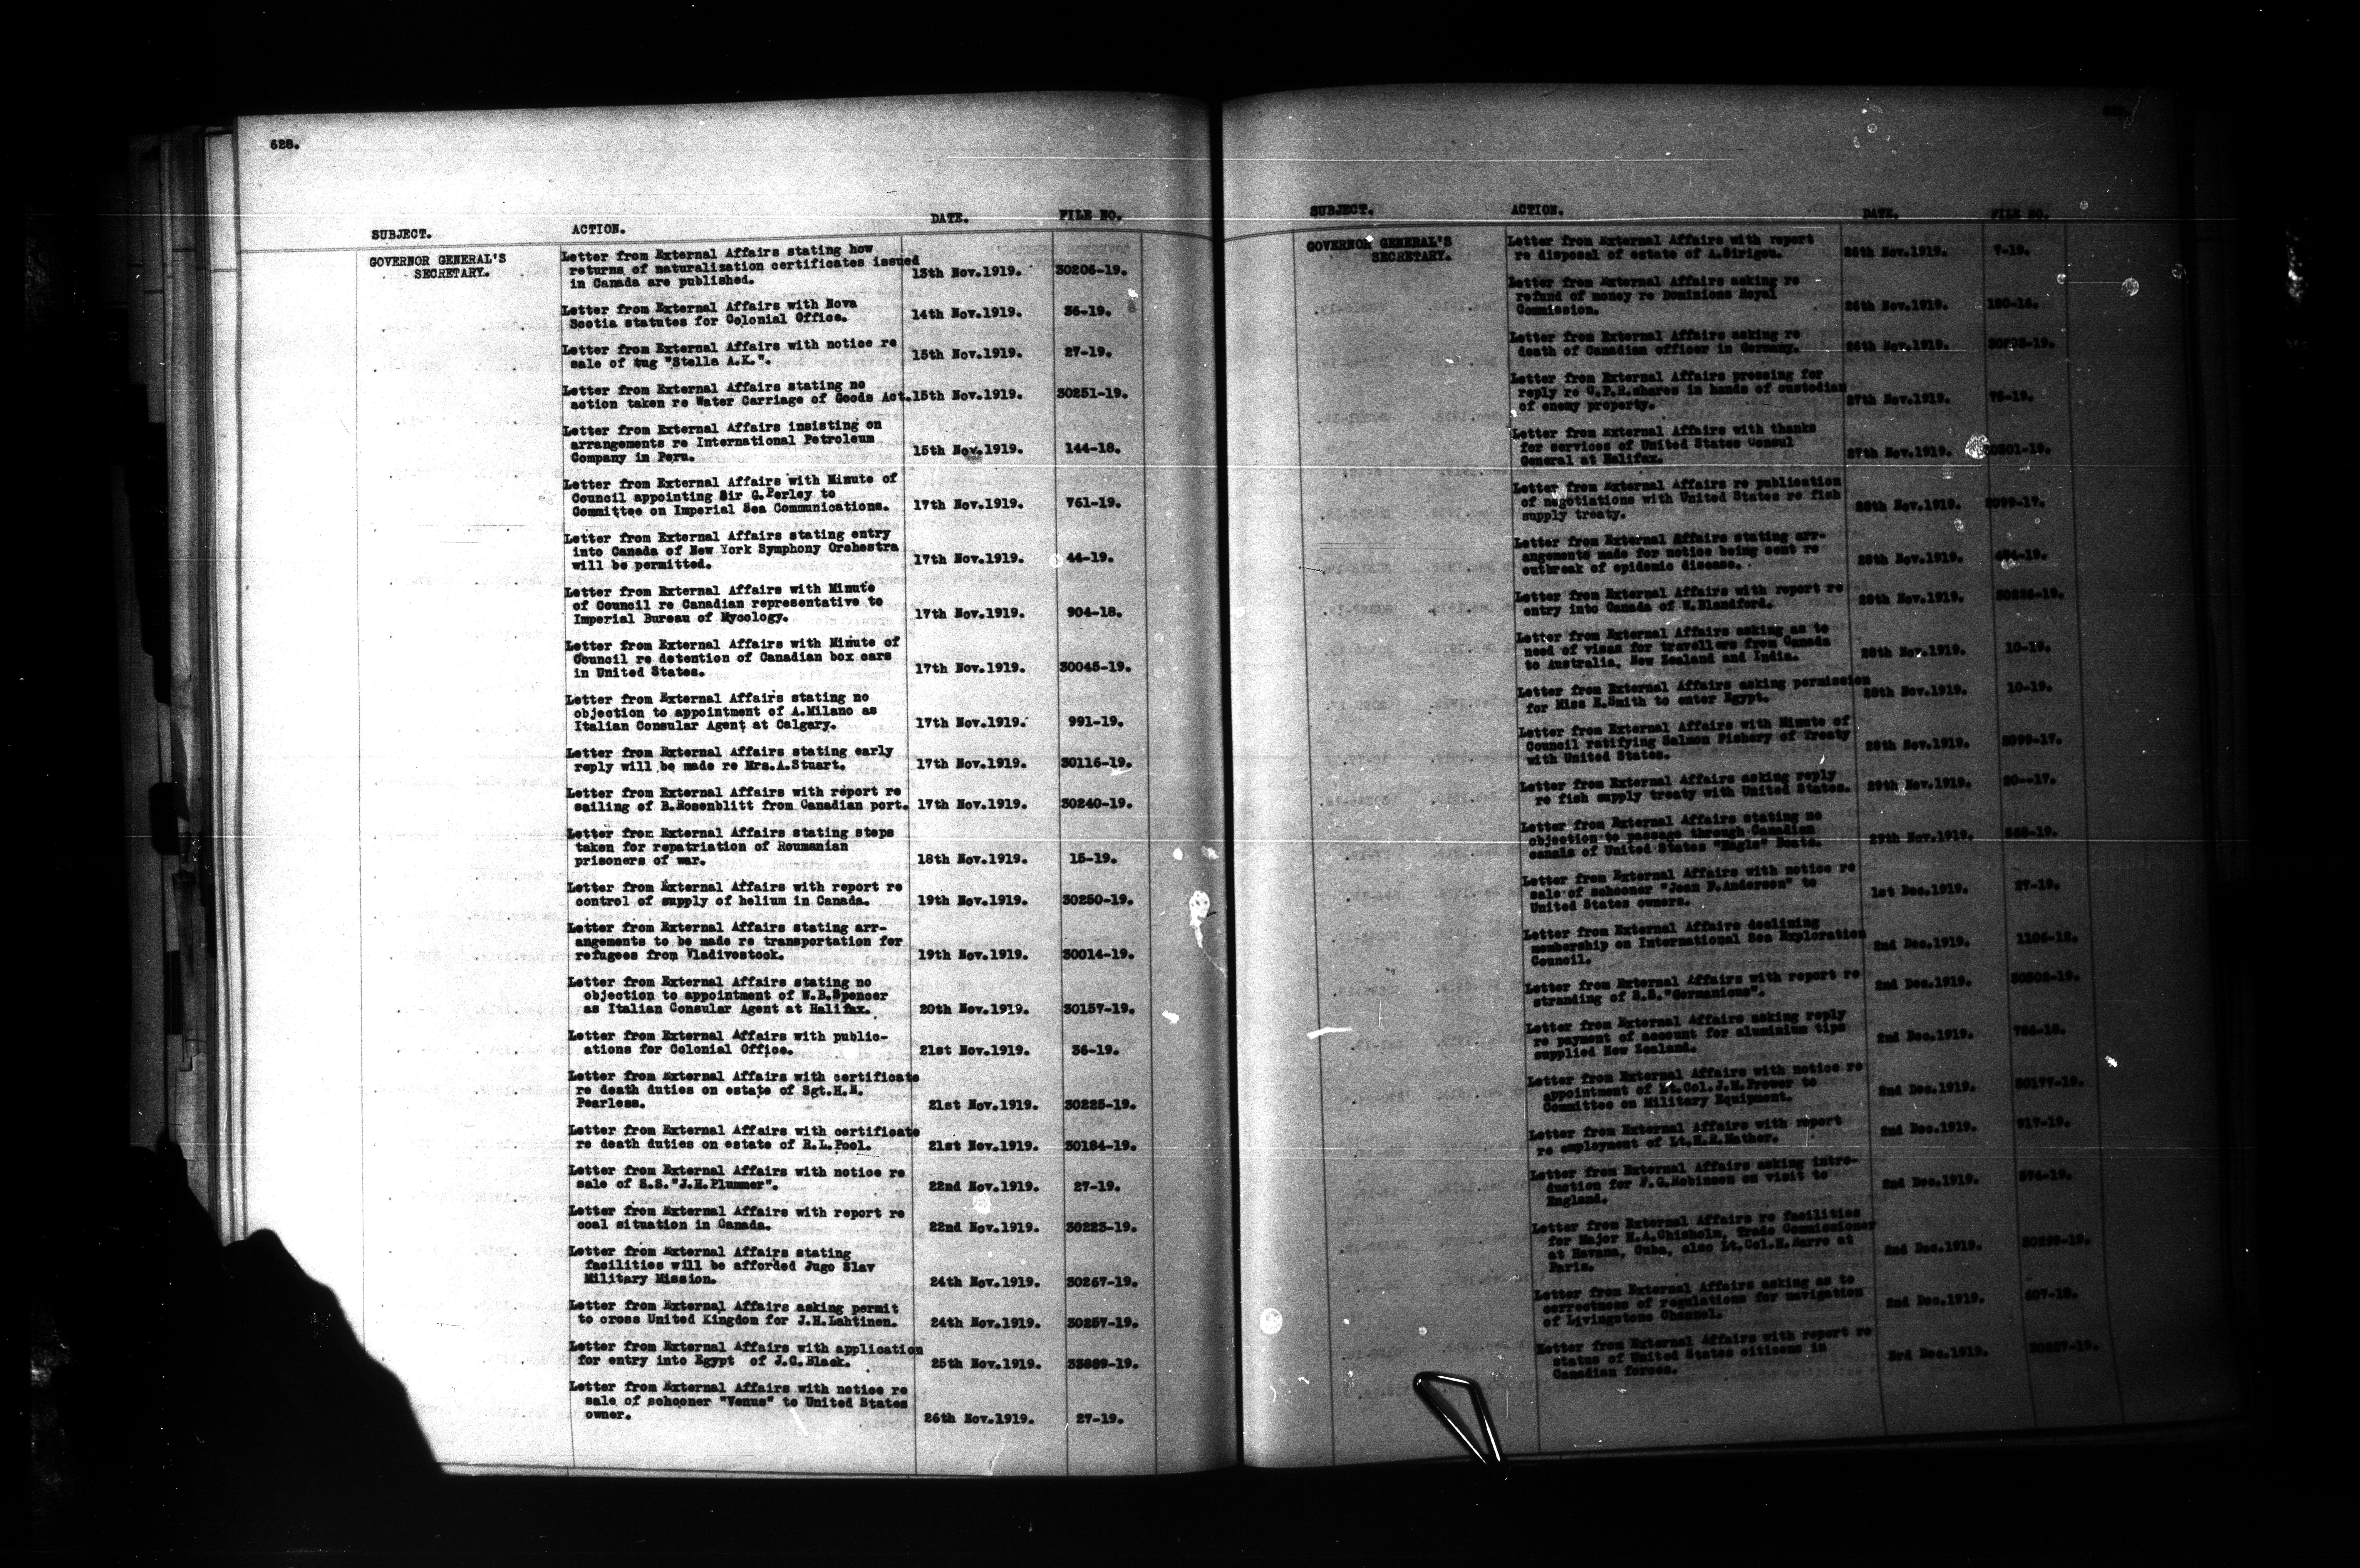 628.
SUBJECT. ACTION. DATE. FILE NO.
GOVERNOR GENERAL'S
SECRETARY.
Letter from External Affairs stating how
returns of naturalization certificates issued
in Canada are published. 13th Nov.1919. 30206-19.
Letter from External Affairs with Nova
Scotia statutes for Colonial Office. 14th Nov.1919. 36-19.
Letter from External Affairs with notice re
sale of tug "Stella A.K.". 15th Nov.1919. 27-19.
Letter from External Affairs stating no
action taken re Water Carriage of Goods Act. 15th Nov.1919. 30251-19.
Letter from External Affairs insisting on
arrangements re International Petroleum
Company in Peru. 15th Nov.1919. 144-18.
Letter from External Affairs with Minute of
Council appointing Sir G.Perley to
Committee on Imperial Sea Communications. 17th Nov.1919. 761-19.
Letter from External Affairs stating entry
into Canada of New York Symphony Orchestra
will be permitted. 17th Nov.1919. 44-19.
Letter from External Affairs with Minute
of Council re Canadian representative to
Imperial Bureau of Mycology. 17th Nov.1919. 904-18.
Letter from External Affairs with Minute of
Council re detention of Canadian box cars
in United States. 17th Nov.1919. 30045-19.
Letter from External Affairs stating no
objection to appointment of A.Milano as
Italian Consular Agent at Calgary. 17th Nov.1919. 991-19.
Letter from External Affairs stating early
reply will be made re Mrs.A.Stuart. 17th Nov.1919. 30116-19.
Letter from External Affairs with report re
sailing of B.Rosenblitt from Canadian port. 17th Nov.1919. 30240-19.
Letter from External Affairs stating steps
taken for repatriation of Roumanian
prisoners of war. 18th Nov.1919. 15-19.
Letter from External Affairs with report re
control of supply of helium in Canada. 19th Nov.1919. 30250-19.
Letter from External Affairs stating arr-
angements to be made re transportation for
refugees from Vladivostock. 19th Nov.1919. 30014-19.
Letter from External Affairs stating no
objection to appointment of W.B.Spencer
as Italian Consular Agent at Halifax. 20th Nov.1919. 30157-19.
Letter from External Affairs with public-
ations for Colonial Office. 21st Nov.1919. 36-19.
Letter from External Affairs with certificate
re death duties on estate of Sgt.H.M.
Pearless. 21st Nov.1919. 30225-19.
Letter from External Affairs with certificate
re death duties on estate of R.L.Pool. 21st Nov.1919. 30184-19.
Letter from External Affairs with notice re
sale of S.S."J.H.Plummer". 22nd Nov.1919. 27-19.
Letter from External Affairs with report re
coal situation in Canada. 22nd Nov.1919. 30223-19.
Letter from External Affairs stating
facilities will be afforded Jugo Slav
Military Mission. 24th Nov.1919. 30267-19.
Letter from External Affairs asking permit
to cross United Kingdom for J.H.Lahtinen. 24th Nov.1919. 30257-19.
Letter from External Affairs with application
for entry into Egypt of J.C.Black. 25th Nov.1919.
Letter from External Affairs with notice re
sale of schooner "Venus" to United States
owner. 26th Nov.1919. 27-19.
SUBJECT. ACTION. DATE. FILE NO.
GOVERNOR GENERAL'S
SECRETARY.
Letter from External Affairs with report
re disposal of estate of A.Sirigou. 26th Nov.1919. 7-19.
Letter from External Affairs asking re
refund of money re Dominions Royal
Commission. 26th Nov.1919.
Letter from External Affairs asking re
death of Canadian officer in Germany. 26th Nov.1919.
Letter from External Affairs pressing for
reply re C.P.R.shares in hands of custodian
of enemy property. 27th Nov.1919.
Letter from External Affairs with thanks
for services of United States Consul
General at Halifax. 27th Nov.1919.
Letter from External Affairs re publication
of negotiations with United States re fish
supply treaty. 28th Nov.1919.
Letter from External Affairs stating arr-
angements made for notice being sent re
outbreak of epidemic disease. 28th Nov.1919.
Letter from External Affairs with report re
entry into Canada of W.Blandford. 28th Nov.1919.
Letter from External Affairs asking as to
need of visas for travellers from Canada
to Australia, New Zealand and India. 28th Nov.1919. 10-19.
Letter from External Affairs asking permission
for Miss E.Smith to enter Egypt. 28th Nov.1919. 10-19.
Letter from External Affairs with Minute of
Council ratifying Salmon Fishery of Treaty
with United States. 28th Nov.1919.
Letter from External Affairs asking reply
re fish supply treaty with United States. 29th Nov.1919.
Letter from External Affairs stating no
objection to passage through Canadian
canals of United States "Eagle" Boats. 29th Nov.1919.
Letter from External Affairs with notice re
sale of schooner "Jean F.Anderson" to
United States owners. 1st Dec.1919. 27-19.
Letter from External Affairs declining
membership on International Sea Exploration
Council. 2nd Dec.1919.
Letter from External Affairs with report re
stranding of S.S."Germanicus". 2nd Dec.1919. 30302-19.
Letter from External Affairs asking reply
re payment of account for aluminium tips
supplied New Zealand. 2nd Dec.1919.
Letter from External Affairs with notice re
appointment of Lt.Col.J.M.Prower to
Committee on Military Equipment. 2nd Dec.1919. 30177-19.
Letter from External Affairs with report
re employment of Lt.H.R.Mather. 2nd Dec.1919. 917-19.
Letter from External Affairs asking intro-
duction for F.G.Robinson on visit to
England. 2nd Dec.1919. 574-19.
Letter from External Affairs re facilities
for Major H.A.Chisholm, Trade Commissioner
at Havana, Cuba, also Lt.Col.H.Barre at
Paris. 2nd Dec.1919.
Letter from External Affairs asking as to
correctness of regulations for navigation
of Livingstone Channel. 2nd Dec.1919.
Letter from External Affairs with report re
status of United States citizens in
Canadian forces. 3rd Dec.1919.